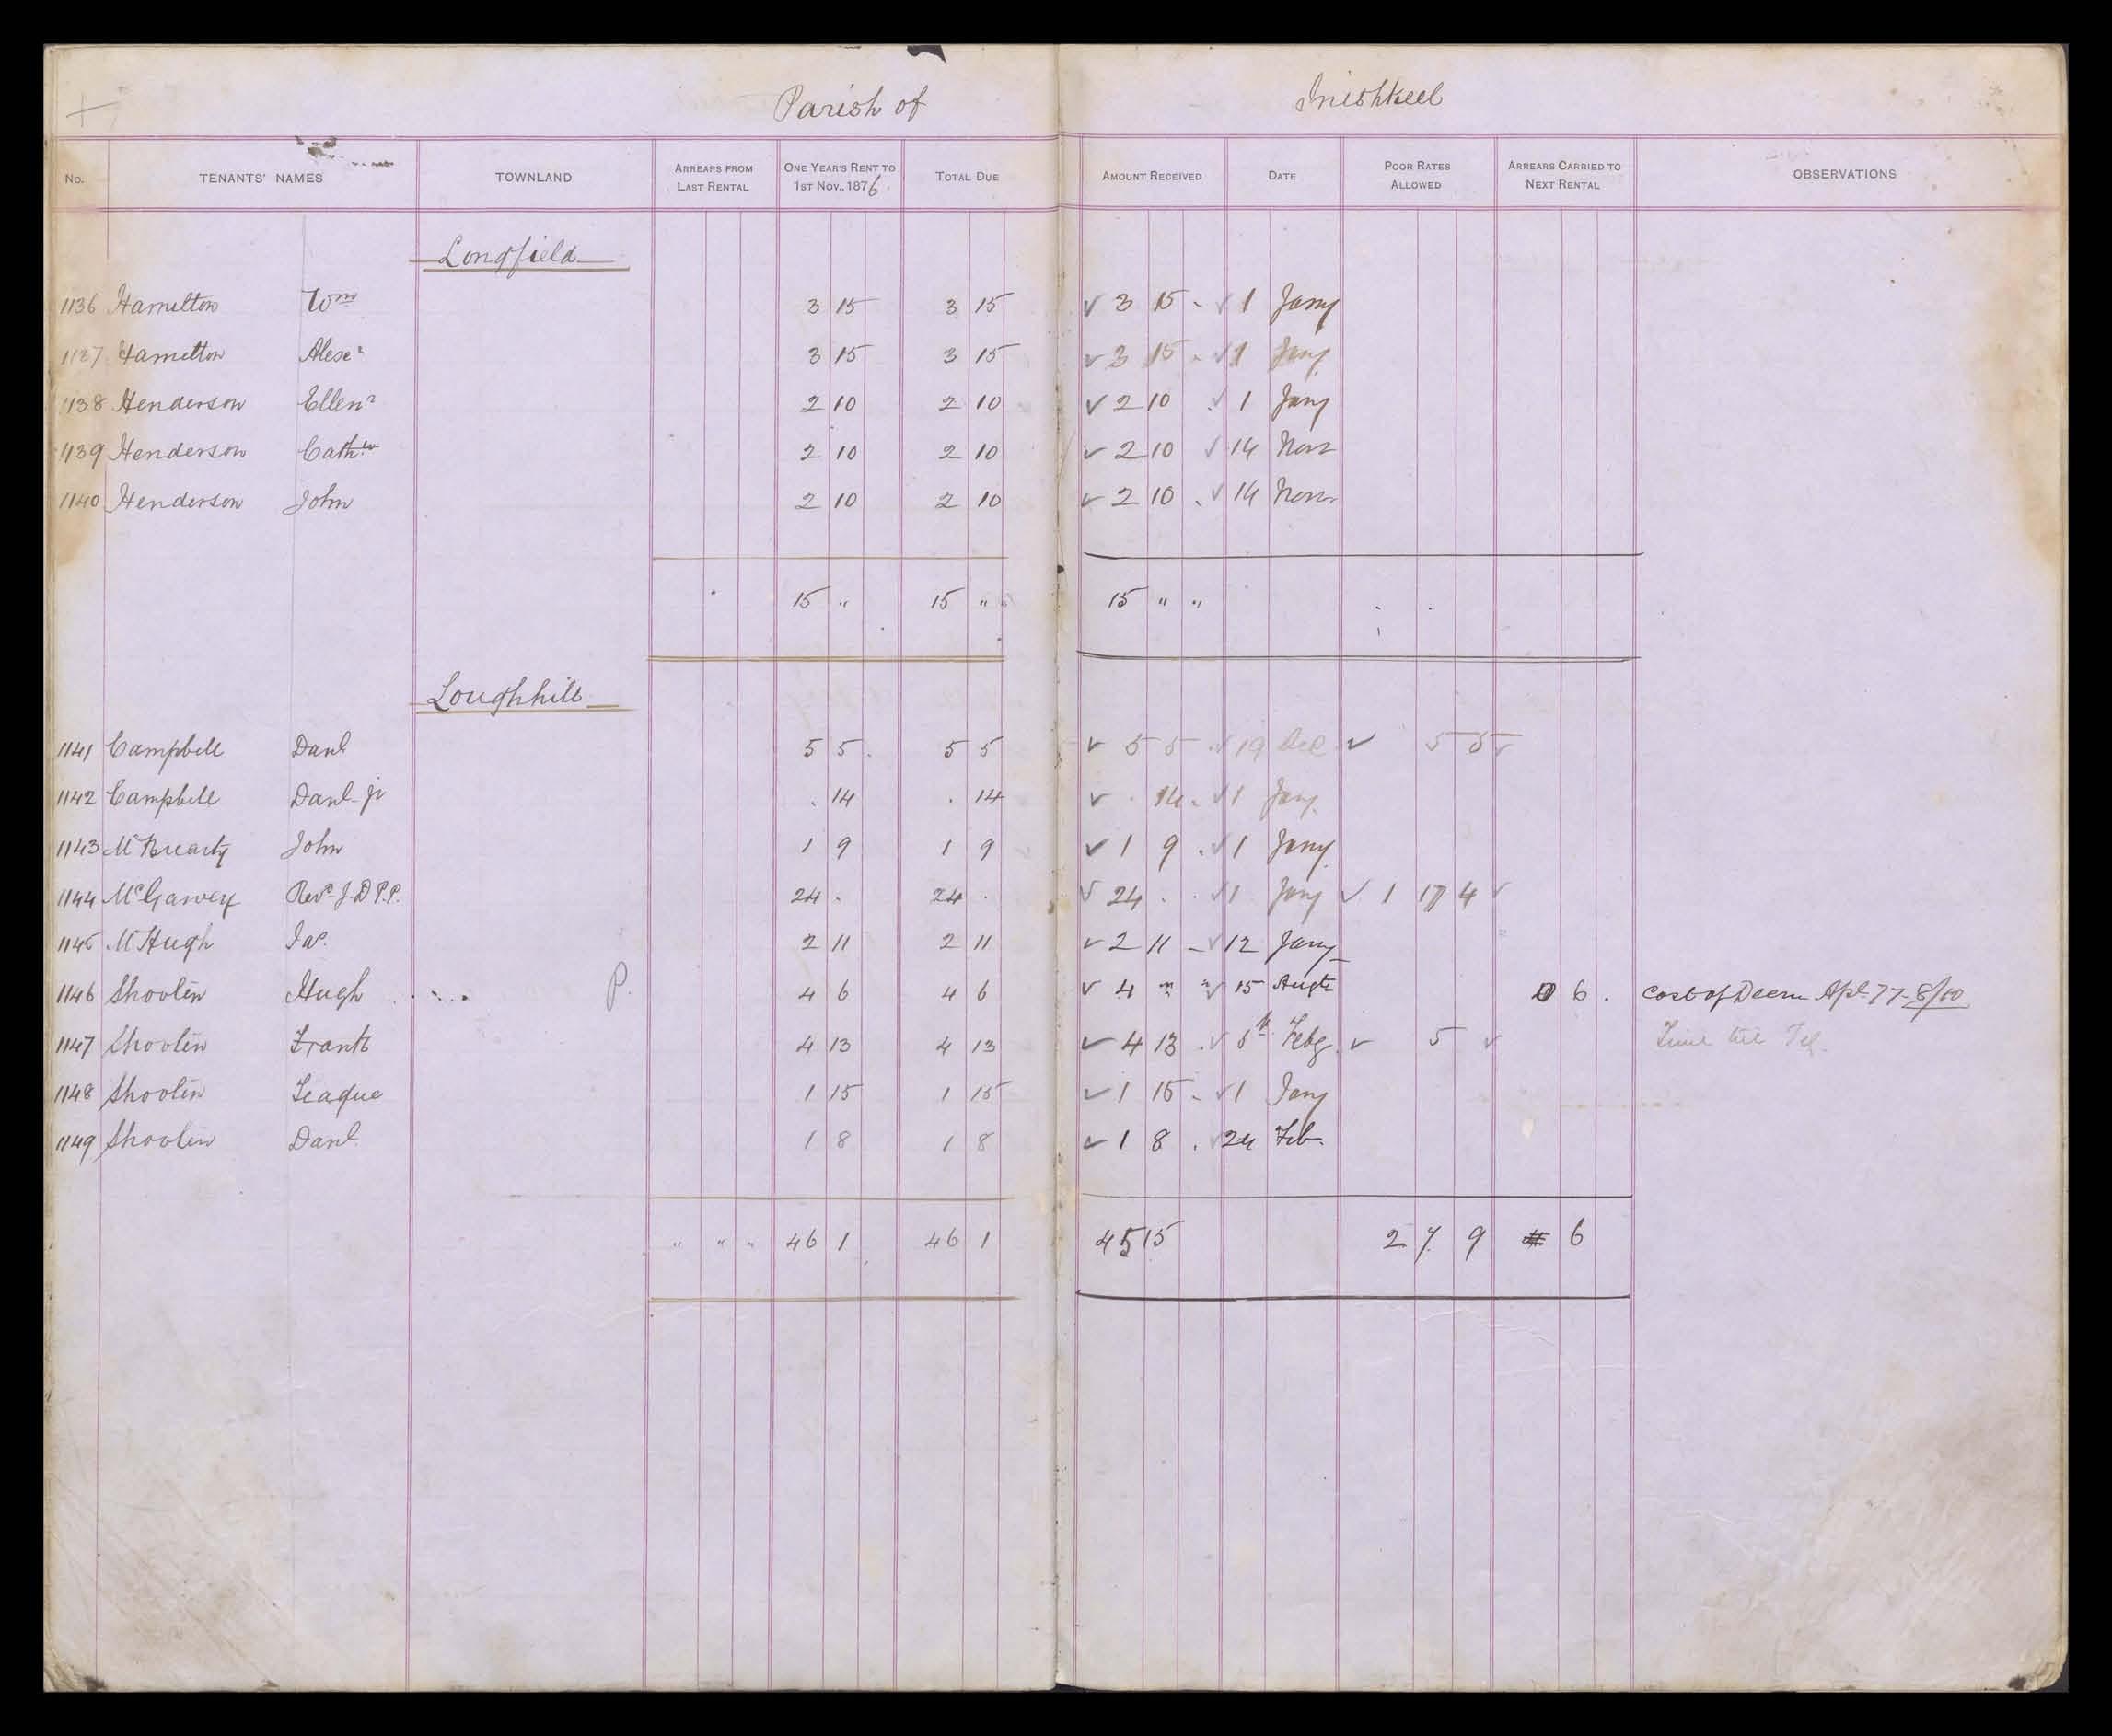 Parish of Inishkeel
No. TENANTS' NAMES TOWNLAND ARREARS FROM LAST RENTAL ONE YEAR'S RENT TO 1ST NOV., 1876 TOTAL DUE AMOUNT RECEIVED DATE POOR RATES ALLOWED ARREARS CARRIED TO NEXT RENTAL OBSERVATIONS
Longfield
1136 Hamilton Wm 3 15 3 15 ✓ 3 15 - ✓ 1 Jany
1137 Hamilton Alexr 3 15 3 15 ✓ 3 15 - ✓ 1 Jany
1138 Henderson Ellenr 2 10 2 10 ✓ 2 10 ✓ 1 Jany
1139 Henderson Cathn 2 10 2 10 ✓ 2 10 ✓ 14 Novr
1140 Henderson John 2 10 2 10 ✓ 2 10 . ✓ 14 Novr
15 " 15 " 15 " "
Loughhill
1141 Campbell Danl 5 5 . 5 5 ✓ 5 5 . ✓ 19 Dec ✓ 5 5 ✓
1142 Campbell Danl jr . 14 . 14 ✓ . 14 . ✓ 1 Jany
1143 McBrearty John 1 9 1 9 ✓ 1 9 . ✓ 1 Jany
1144 McGarvey Revd J. D P.P. 24 . 24 . ✓ 24 . . ✓ 1 Jany ✓ 1 17 4 ✓
1145 McHugh Jas. 2 11 2 11 ✓ 2 11 - ✓ 12 Jany
1146 Shovlin Hugh P. 4 6 4 6 ✓ 4 " " ✓ 15 Augt 6 . Cost of Decree Apl 77 - 8/10
1147 Shovlin Frank 4 13 4 13 ✓ 4 13 . ✓ 5th Feby ✓ 5 ✓ Time till
1148 Shovlin Teague 1 15 1 15 ✓ 1 15 - ✓ 1 Jany
1149 Shovlin Danl 1 8 1 8 ✓ 1 8 . ✓ 24 Feb.
" " " 46 1 46 1 45 15 2 7 9 6